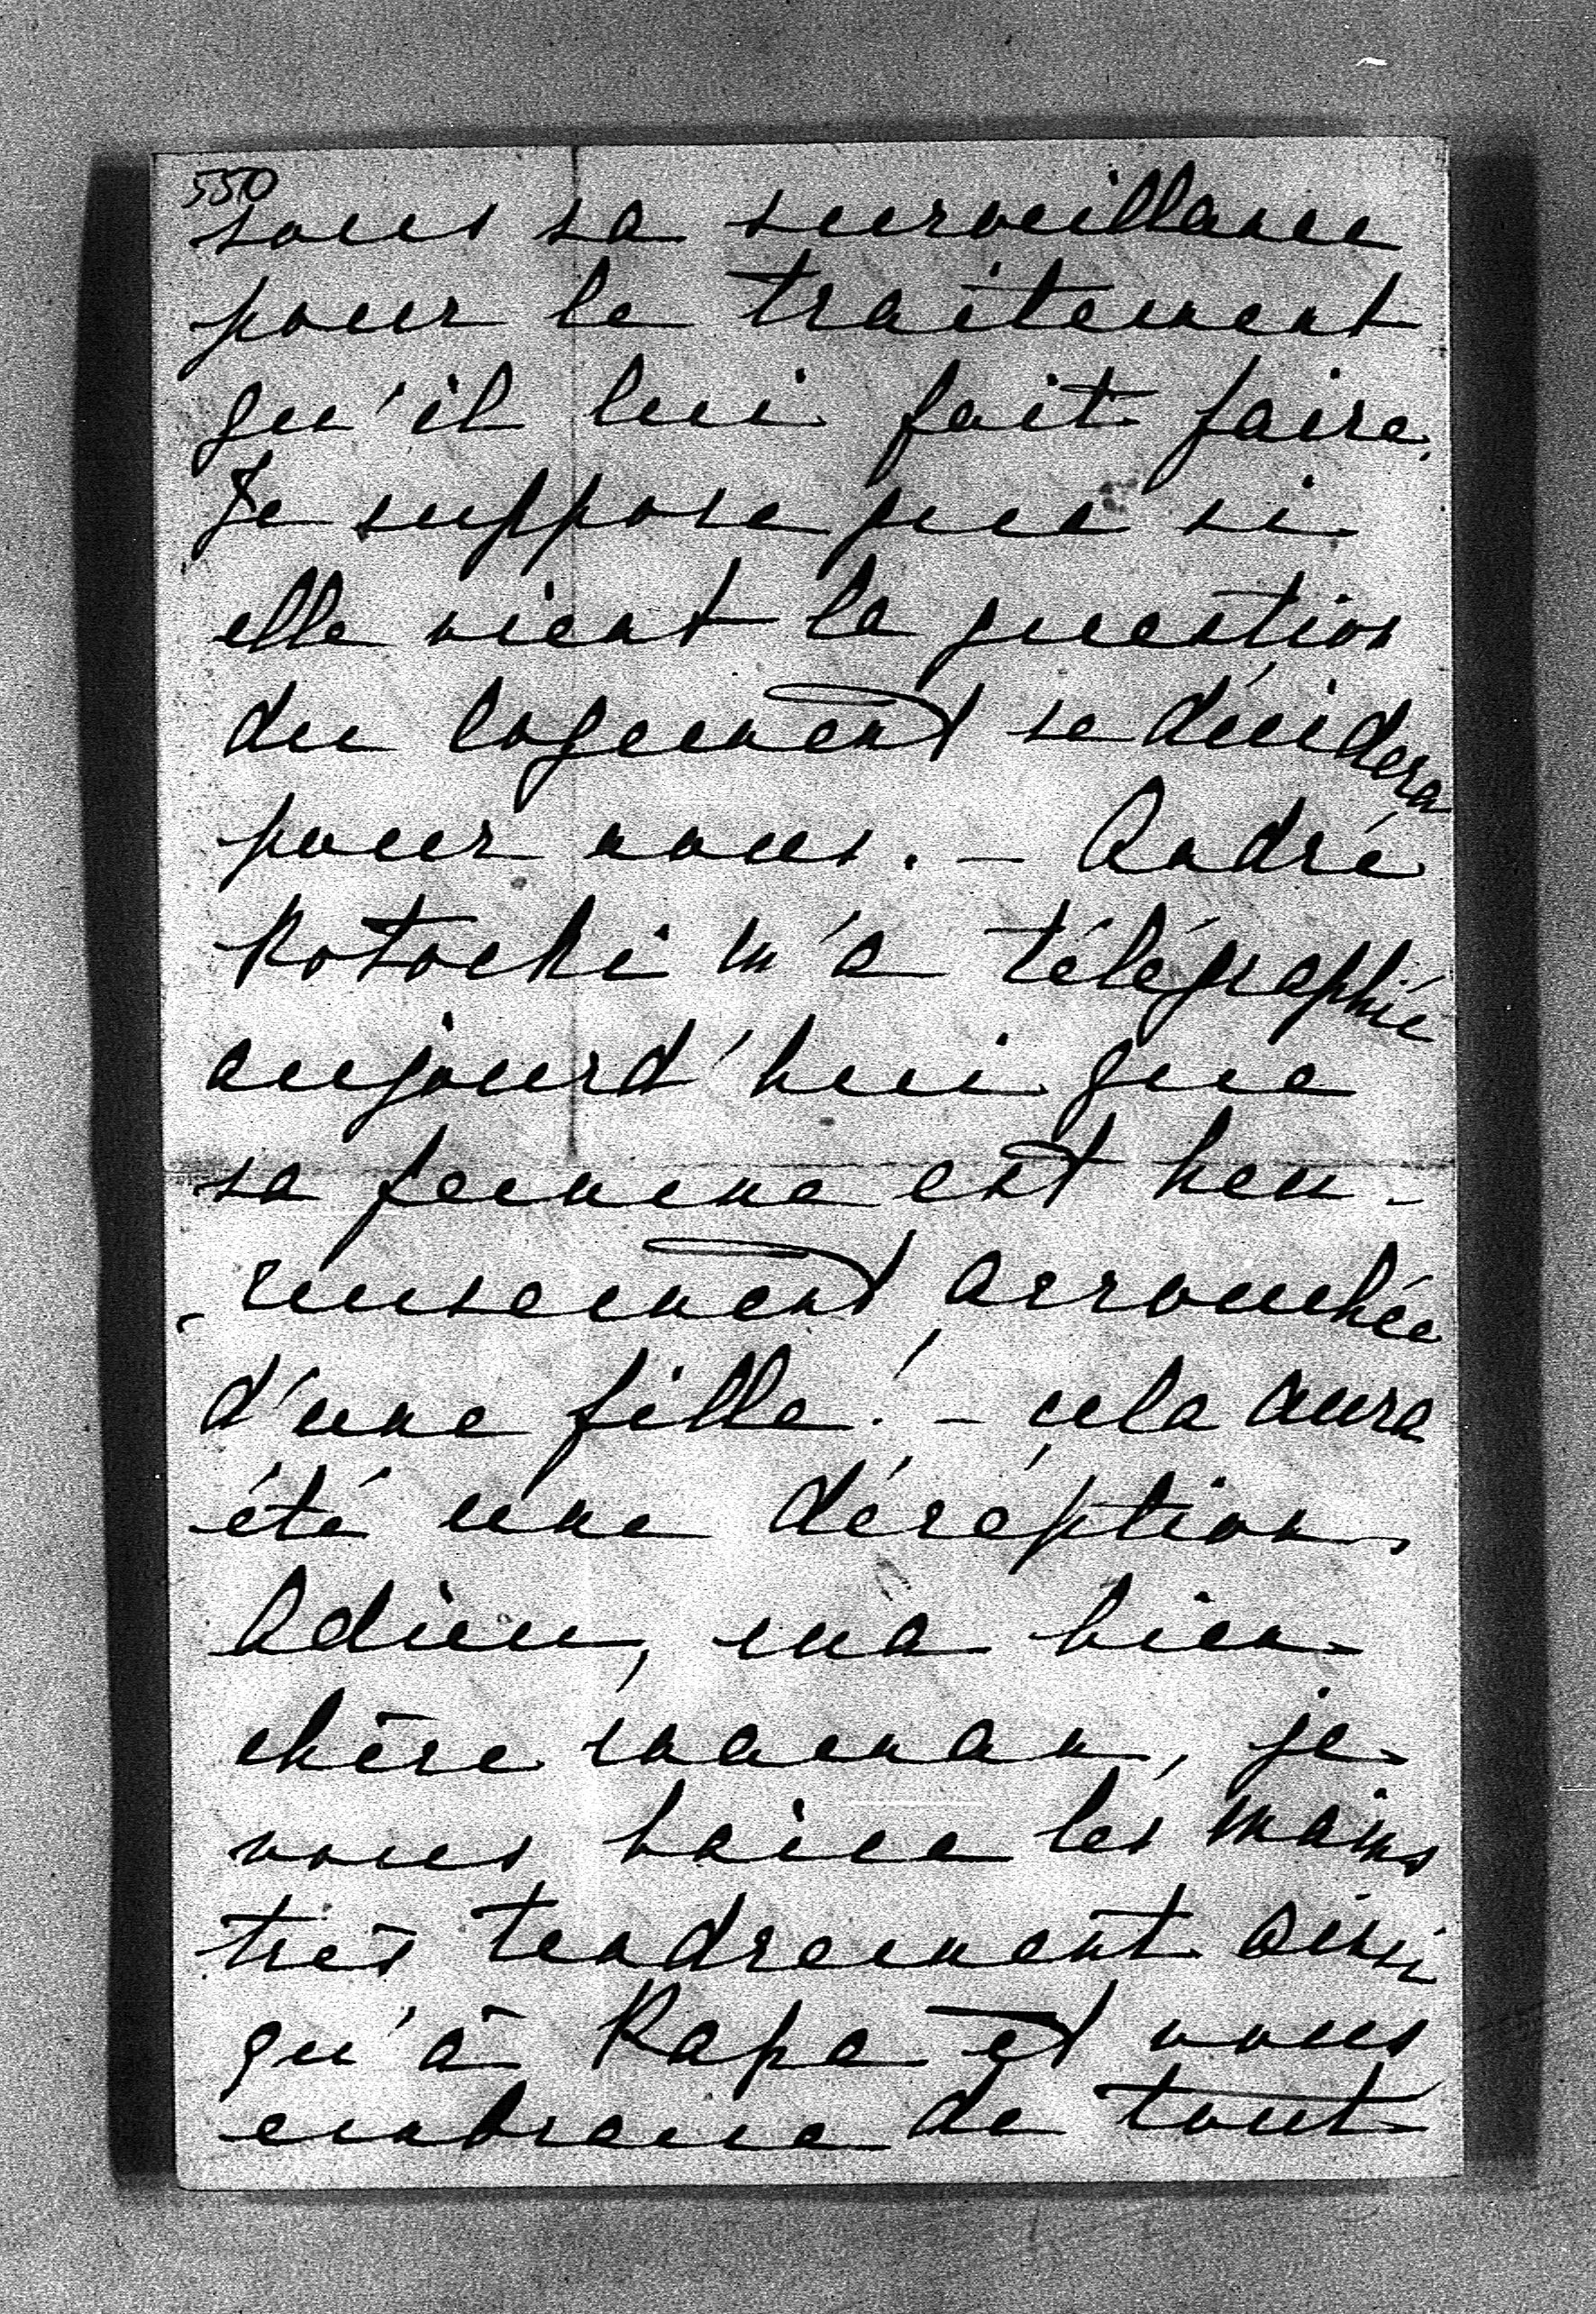 550
sous sa surveillance
pour le traitement
qu'il lui fait faire.
Je suppose que si
elle vient la question
du logement se décidera
pour nous. – André
Potocki m'a télégraphié
aujourd'hui que
sa femme est heu-
-reusement accouchée
d'une fille! – cela aura
été une déception
Adieu, ma bien
chère maman, je
vous baise les mains
très tendrement ainsi
qu'à Papa et vous
embrasse de tout